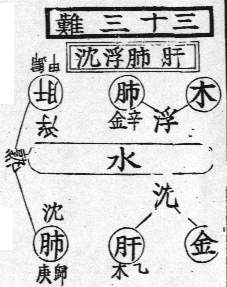 難三十三
沈浮肺肝
木
肺
辛金
浮
肝
甲歸
浮
熟
水
沈
金
肝
乙木
沈
肺
庚歸